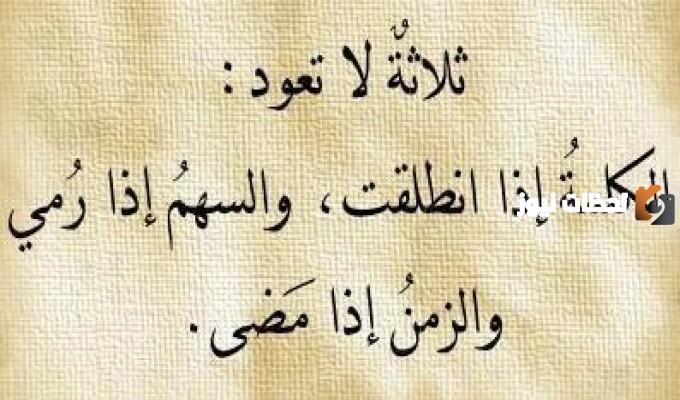 ثلاثةٌ لا تعود :
الكلمةُ إذا انطلقت، والسهمُ إذا رُمي
والزمنُ إذا مَضى.
لحظات نيوز